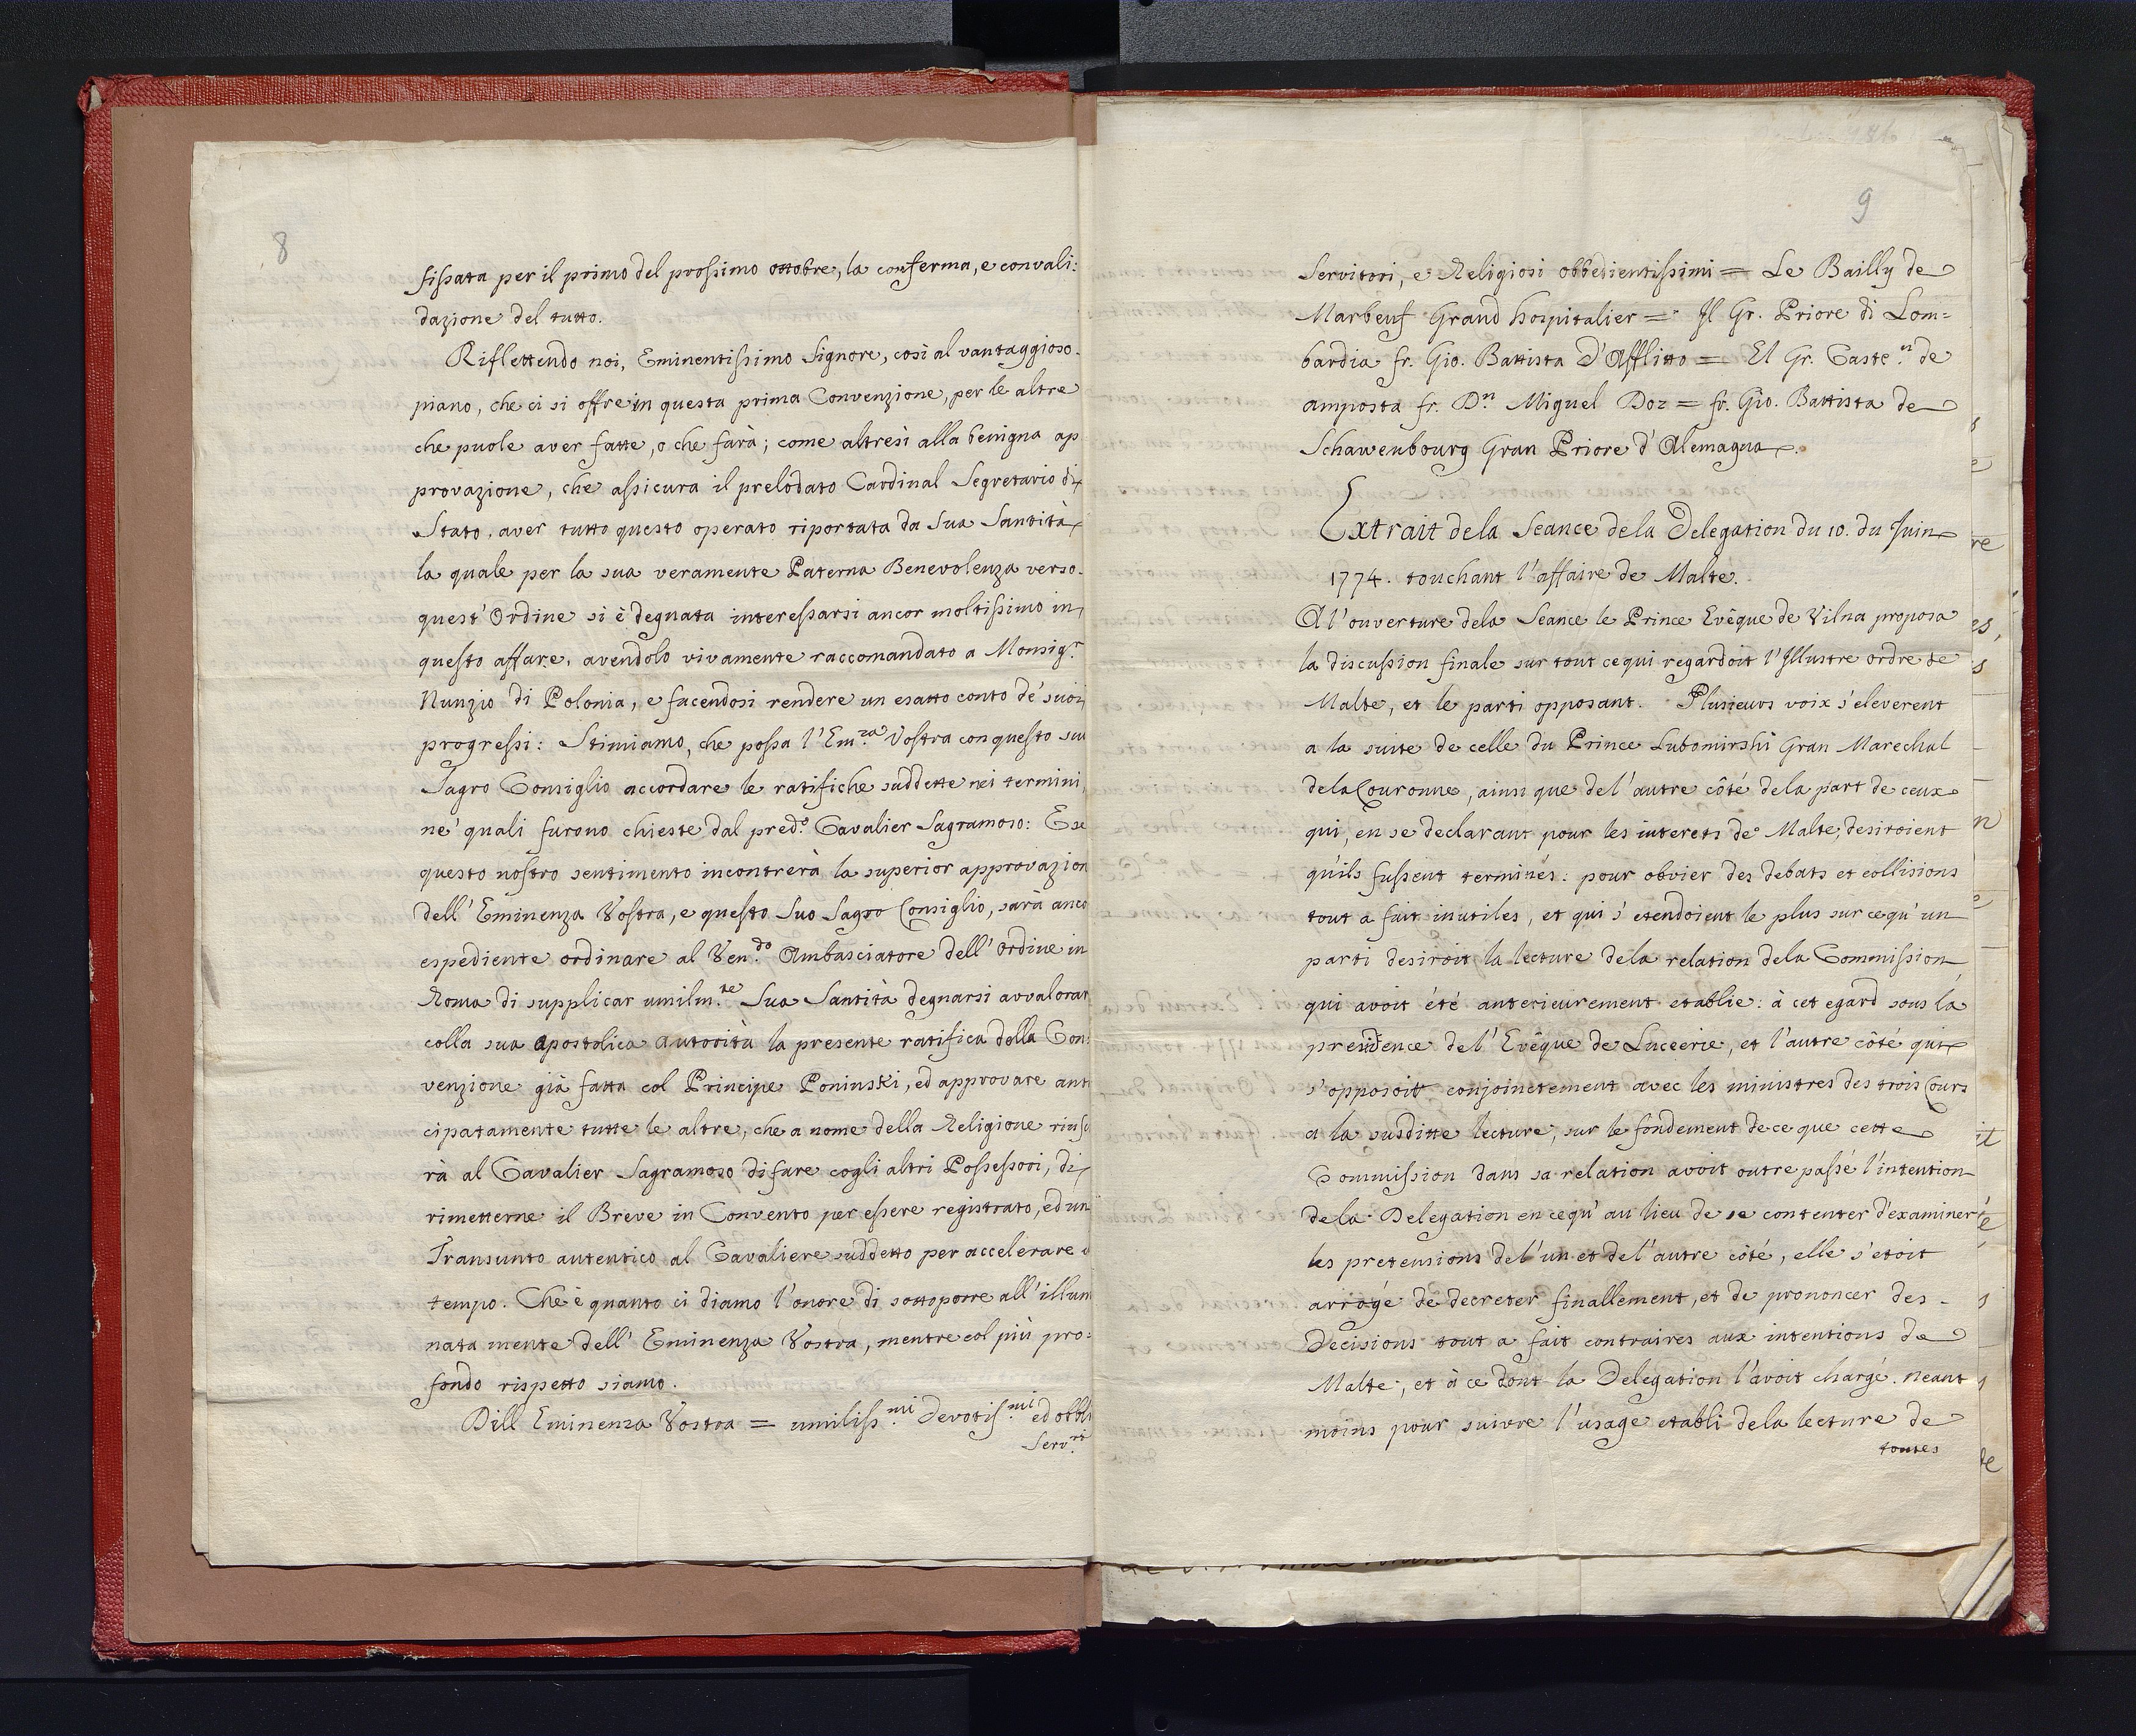 8
fissata per il primo del prossimo ottobre, la conferma, e convali:
dazione del tutto.
Riflettendo noi, Eminentissimo Signore, così al vantaggioso
piano, che ci si offre in questa prima Convenzione, per le altre
che puole aver fatte, o che farà; come altresì alla benigna ap
provazione, che assicura il prelodato Cardinal Segretario di
Stato, aver tutto questo operato riportata da Sua Santità
la quale per la sua veramente Paterna Benevolenza verso
quest'Ordine si è degnata interessarsi ancor moltissimo in
questo affare, avendolo vivamente raccomandato a Monsig.r
Nunzio di Polonia, e facendosi rendere un esatto conto de' suoi
progressi: Stimiamo, che possa l'Em.za Vostra con questo su
Sagro Consiglio accordare le ratifiche suddette nei termini,
ne' quali furono chieste dal pred.o Cavalier Sagramoso: E se
questo nostro sentimento incontrerà la superior approvazion
dell'Eminenza Vostra, e questo Suo Sagro Consiglio, sarà anco
espediente ordinare al Ven.do Ambasciatore dell'Ordine in
Roma di supplicar umilm.te Sua Santità degnarsi avvalorar
colla sua apostolica autorità la presente ratifica della Con:
venzione già fatta col Principe Poninski, ed approvare anti
cipatamente tutte le altre, che a nome della Religione riusci
rà al Cavalier Sagramoso di fare cogli altri Possessori, di
rimetterne il Breve in Convento per essere registrato, ed un
Transunto autentico al Cavaliere suddetto per accelerare
tempo. Che è quanto ci diamo l'onore di sottoporre all'illum
nata mente dell'Eminenza Vostra, mentre col più pro:
fondo rispetto siamo.
Dell Eminenza Vostra = umiliss.mi devotis.mi ed obbli
Serv.ri
9
Servitori, e Religiosi obbedientissimi = Le Bailly de
Marbeuf Grand hospitalier = Il Gr. Priore di Lom=
bardia fr. Gio. Battista D'Afflitto = El Gr. Caste.n de
amposta fr. D.n Miguel Doz = fr. Gio. Battista de
Schawenbourg Gran Priore d'Alemagna.
Extrait dela Seance dela Delegation du 10. du Juin
1774. touchant l'affaire de Malte.
A l'ouverture dela Seance le Prince Evêque de Vilna proposa
la discussion finale sur tout cequi regardoit l'Illustre ordre de
Malte, et le parti opposant. Plusieurs voix s'eleverent
a la suite de celle du Prince Lubomirshi Gran Marechal
dela Couronne, ainsi que del'autre côté dela part de ceux
qui, en se declarant pour les interets de Malte, desiroient
qu'ils fussent terminés: pour obvier des debats et collisions
tout a fait inutiles, et qui s'etendoient le plus sur cequ'un
parti desiroit la lecture dela relation dela Commission
qui avoit été anterieurement etablie: à cet egard sous la
presidence del'Evêque de Luceerie, et l'autre côté qui
s'opposoit conjoinctement avec les ministres des trois Cours
a la susditte lecture, sur le fondement de ce que cette
Commission dans sa relation avoit outre passé l'intention
dela Delegation en cequ'au lieu de se contenter d'examiner
les pretensions del'un et del'autre côté, elle s'etoit
arrogé de decreter finallement, et de prononcer des
Decisions tout a fait contraires aux intentions de
Malte, et à ce dont la Delegation l'avoit chargé. neant
moins pour suivre l'usage etabli dela lecture de
toutes